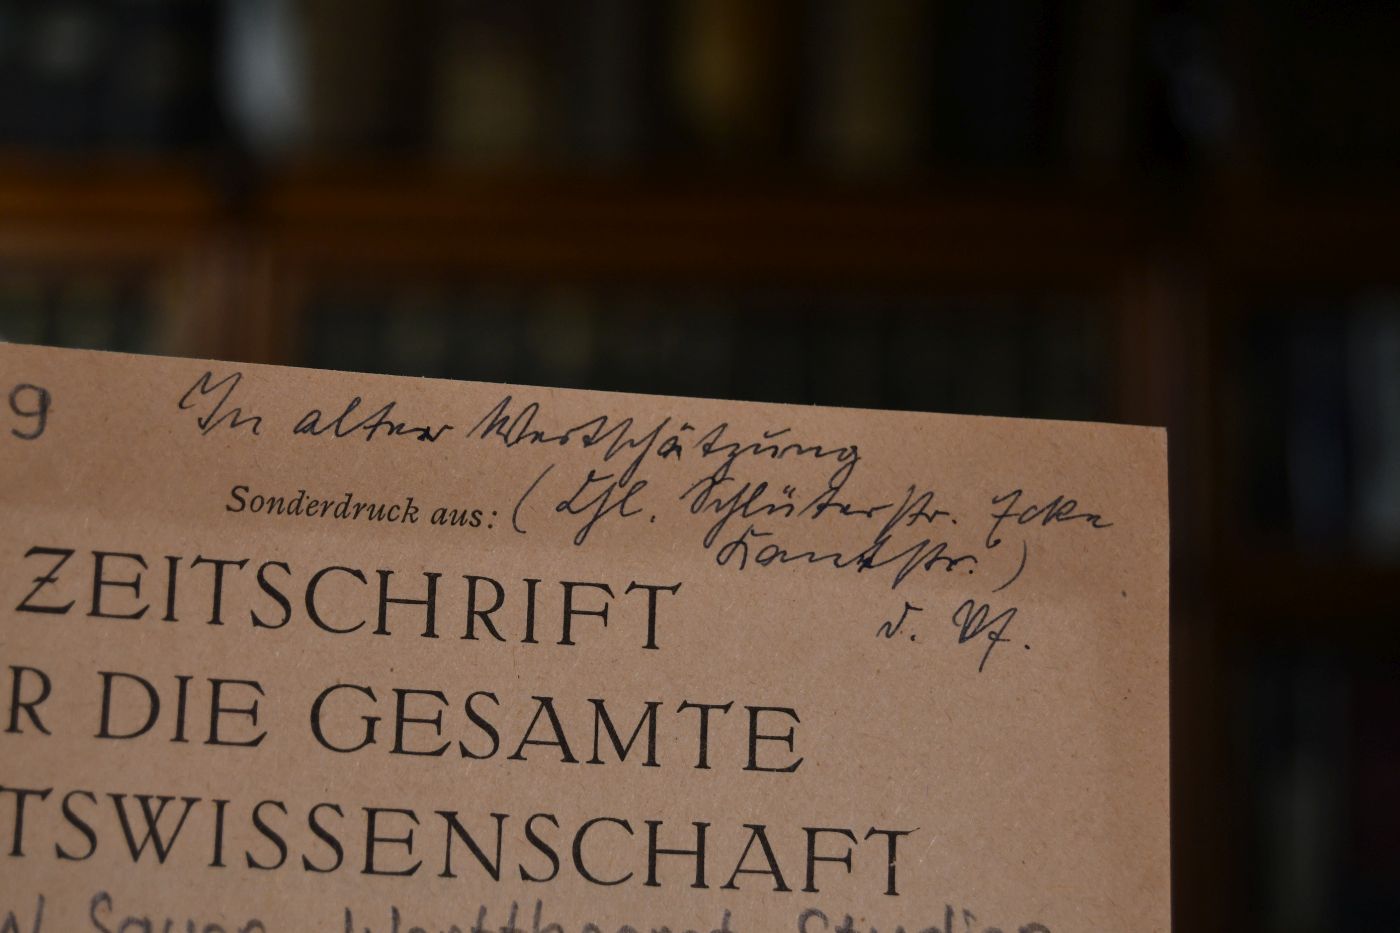 9 In alter Wertschätzung
Sonderdruck aus: ( Schlüterstr. Ecke
Kantstr.)
d. Vf.
ZEITSCHRIFT
R DIE GESAMTE
TSWISSENSCHAFT
W Sauer Studien